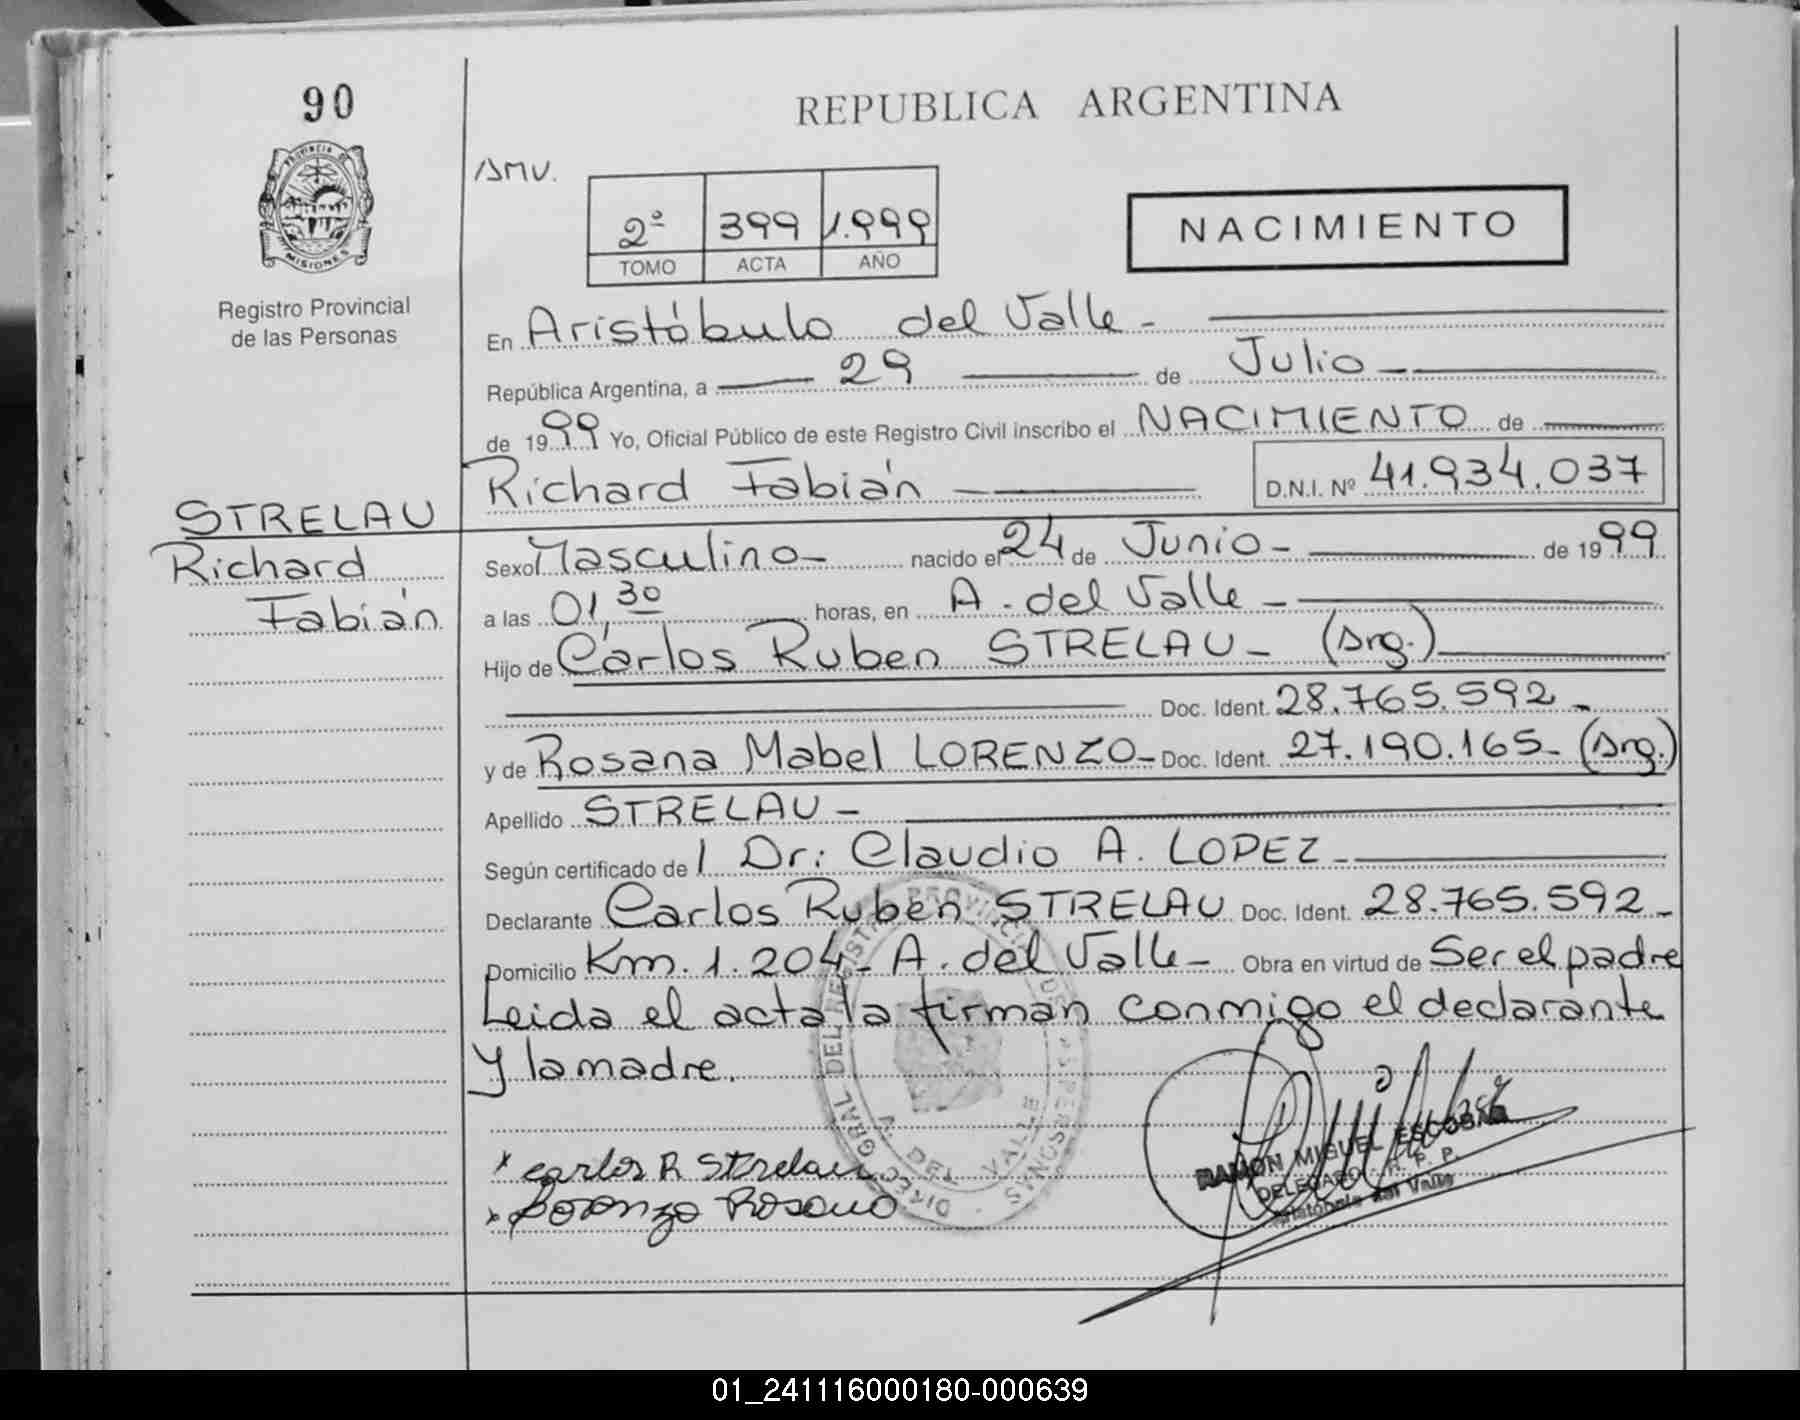 90
REPUBLICA ARGENTINA
PROVINCIA DE
MISIONES
Registro Provincial
de las Personas
AMV.
2º 399 1.999
TOMO ACTA AÑO
NACIMIENTO
En Aristóbulo del Valle -
República Argentina, a 29 de Julio -
de 1999 Yo, Oficial Público de este Registro Civil inscribo el NACIMIENTO de
Richard Fabián D.N.I. Nº 41.934.037
STRELAU
Richard
Fabián
Sexo Masculino - nacido el 24 de Junio - de 1999
a las 01,30 horas, en A. del Valle -
Hijo de Carlos Ruben STRELAU - (Arg.)
Doc. Ident. 28.765.592 -
y de Rosana Mabel LORENZO - Doc. Ident. 27.190.165 - (Arg.)
Apellido STRELAU -
Según certificado de l Dr: Claudio A. LOPEZ -
Declarante Carlos Rubén STRELAU Doc. Ident. 28.765.592 -
Domicilio Km. 1.204 - A. del Valle - Obra en virtud de Ser el padre
Leida el acta la firman conmigo el declarante
y la madre.
x Carlos R Strelau
x Lorenzo Rosana
A. DEL VALLE
RAMON MIGUEL ESCOBAR
DELEGADO - R. P. P.
Aristóbulo del Valle
01_241116000180-000639